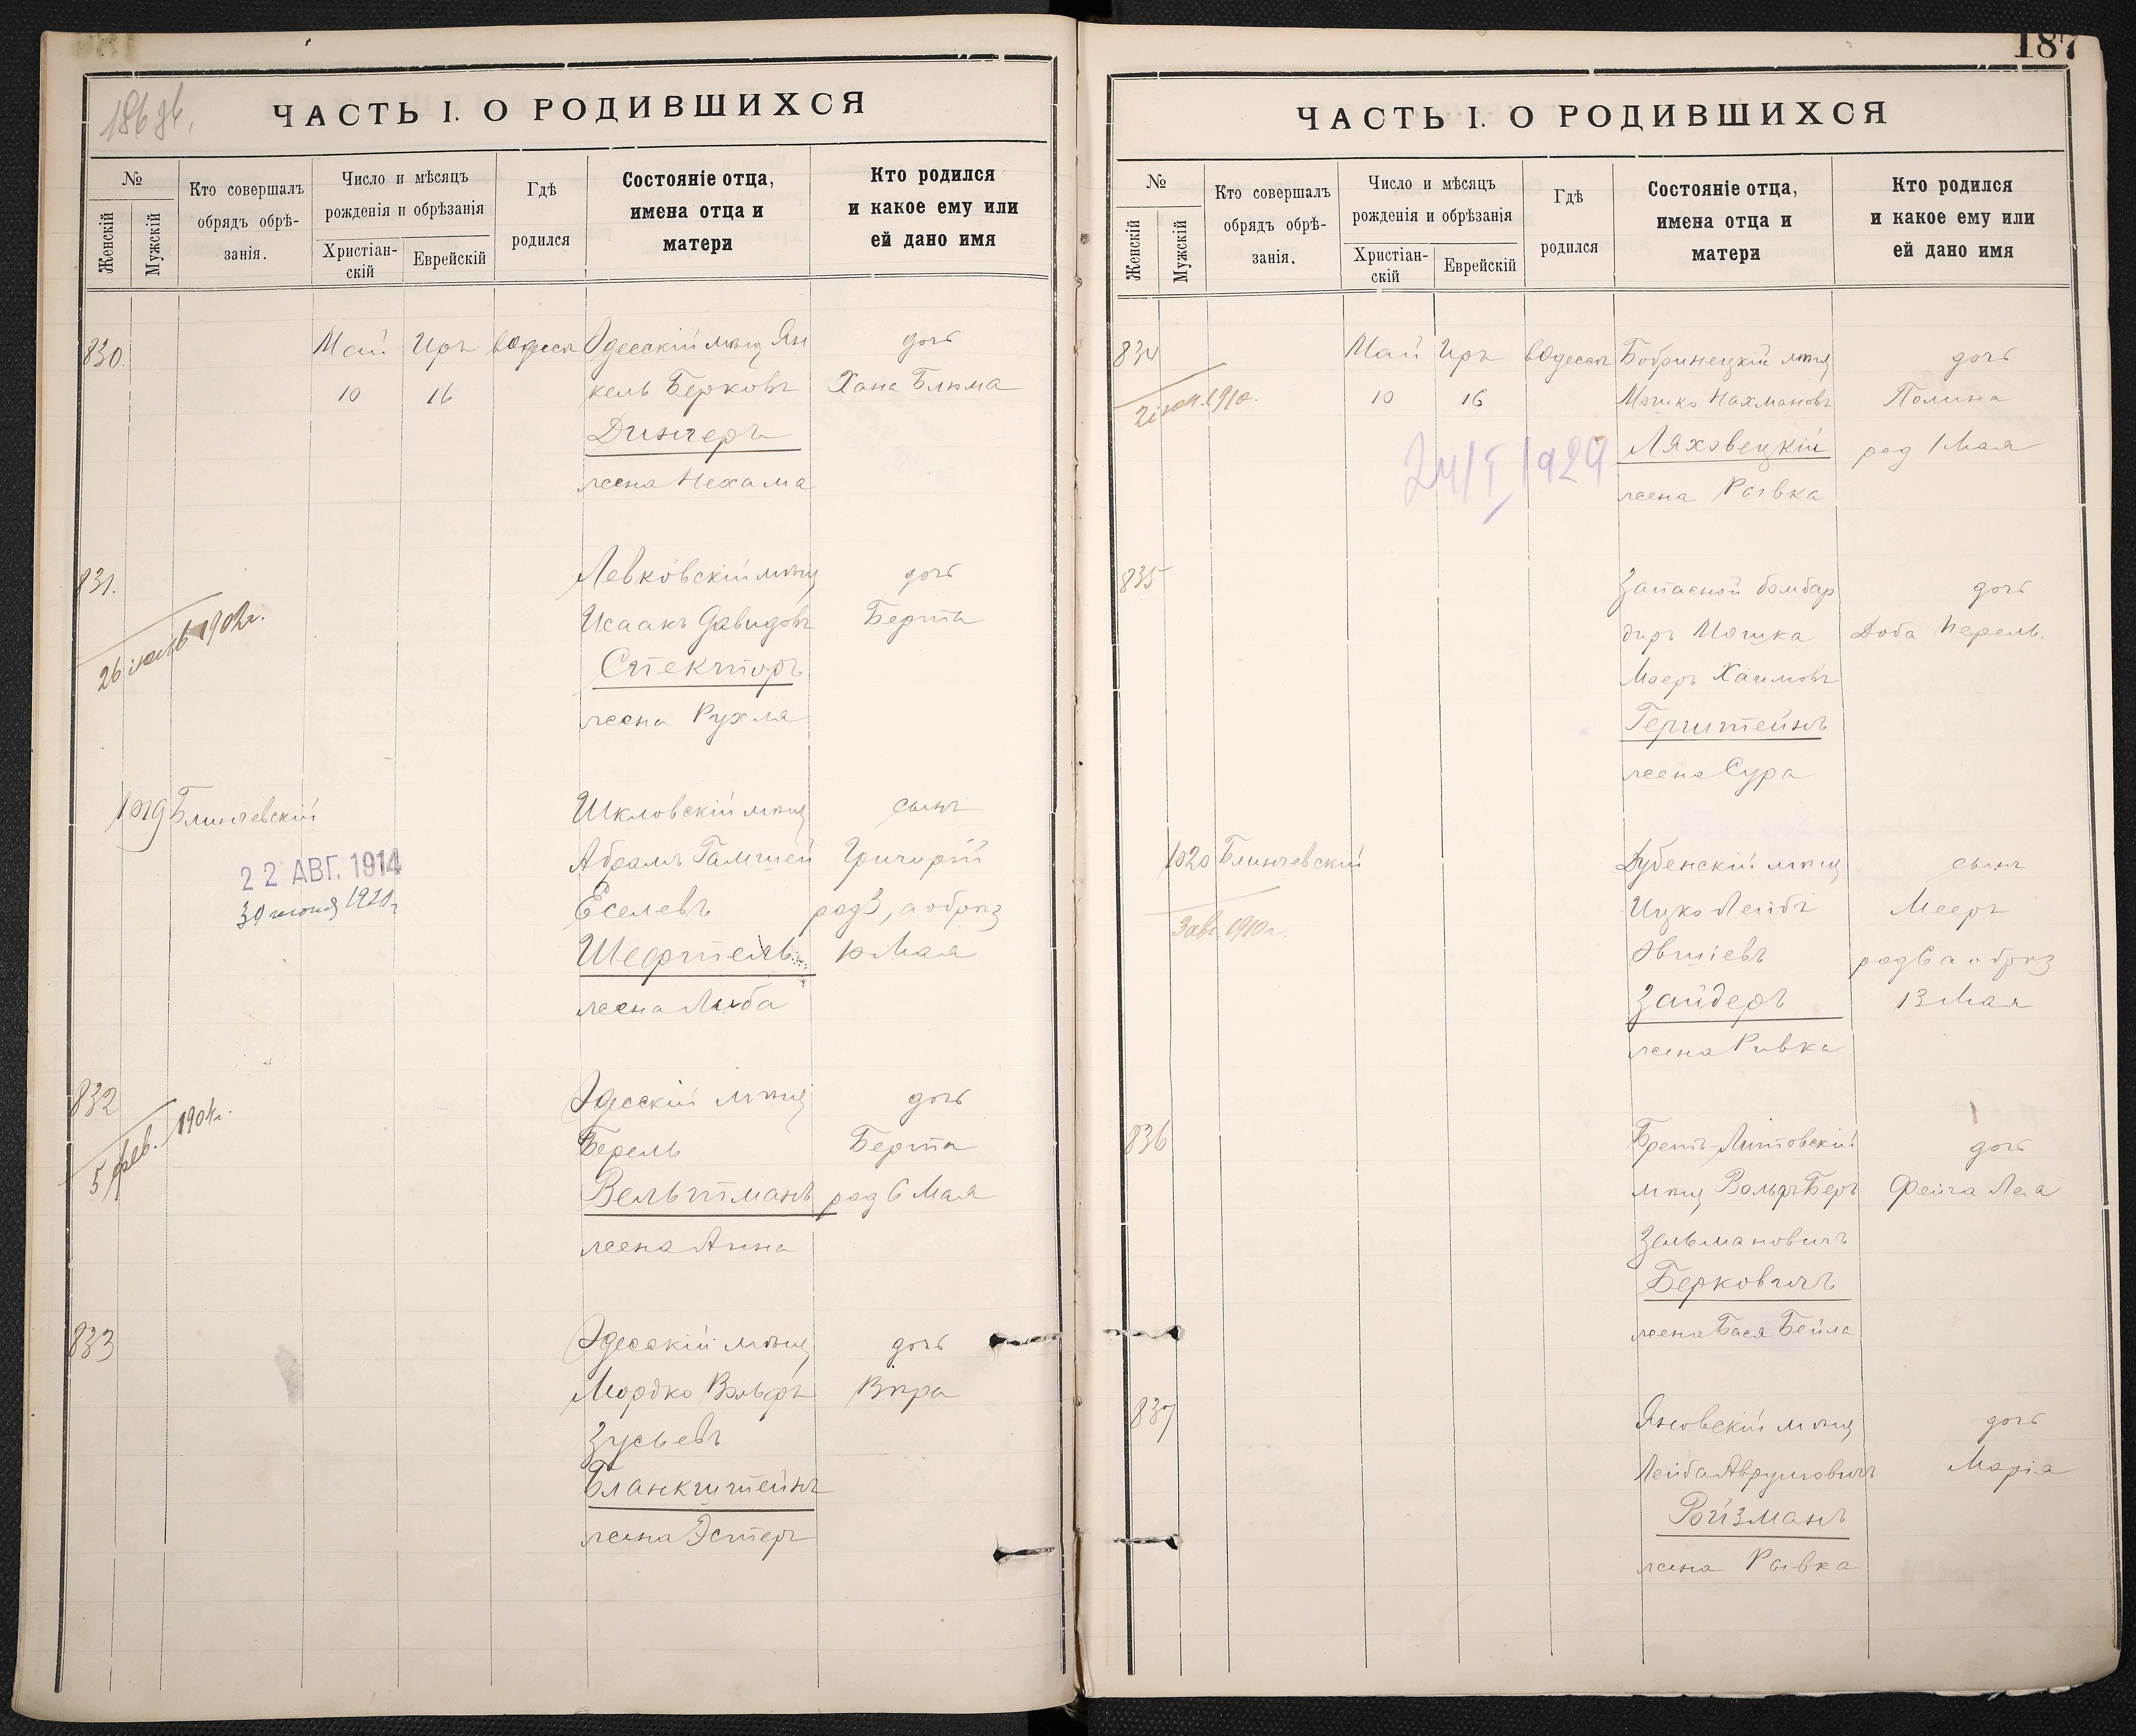 186 об.
ЧАСТЬ I. О РОДИВШИХСЯ
№
Женскій
Мужскій
Кто совершалъ
обрядъ обрѣ-
занія.
Число и мѣсяцъ
рожденія и обрѣзанія
Христіан-
скій
Еврейскій
Гдѣ
родился
Состояніе отца,
имена отца и
матери
Кто родился
и какое ему или
ей дано имя
830. Май Иръ въ Одессѣ Одесскій мѣщ Ян дочь
10 16 кель Берковъ Хана Блюма
Динчеръ
жена Нехама
831. Левковскій мѣщ дочь
Исаакъ Давидовъ Берта
26 1902г.
Спекторъ
жена Рухля
1019 Блинчевскій Шкловскій мѣщ сынъ
Абрамъ Гамшей Григорій
22 АВГ. 1914
30 1920г
Еселевъ род 3, а обрѣз
Шефтель 10 Мая
жена Люба
832 Одесскій мѣщ дочь
5 фев. 1904г.
Берель Берта
Вельтманъ род 6 Мая
жена Анна
833 Одесскій мѣщ дочь
Мордко Вольфъ Вѣра
Зусьевъ
Бланкштейнъ
жена Эстеръ
187
ЧАСТЬ I. О РОДИВШИХСЯ
№
Женскій
Мужскій
Кто совершалъ
обрядъ обрѣ-
занія.
Число и мѣсяцъ
рожденія и обрѣзанія
Христіан-
скій
Еврейскій
Гдѣ
родился
Состояніе отца,
имена отца и
матери
Кто родился
и какое ему или
ей дано имя
834 Май Иръ въ Одессѣ Бобринецкій мѣщ дочь
1910г.
10 16 Мошко Нахмановъ Полина
24/I 1929 Ляховецкій род 1 Мая
жена Рывка
835 Запасной бомбар дочь
диръ Мошка Доба Перель.
Мееръ Хаимовъ
Герштейнъ
жена Сура
1020 Блинчевскій Дубенскій мѣщ сынъ
3 авг. 1910г.
Ицко Лейбъ Мееръ
Овшіевъ род 6 а обрѣз
Зайдеръ 13 Мая
жена Ривка
836 Брестъ-Литовскій дочь
мѣщ Вольфъ Беръ Фейга Лея
Зальмановичъ
Берковичъ
жена Бася Бейла
837 Яновскій мѣщ дочь
Лейба Аврумовичъ Марія
Ройзманъ
жена Рывка